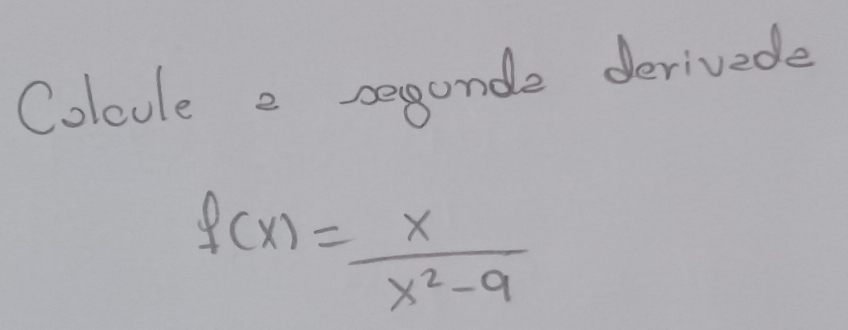 Calcule a segunda derivada
f(x) = x / (x² - 9)